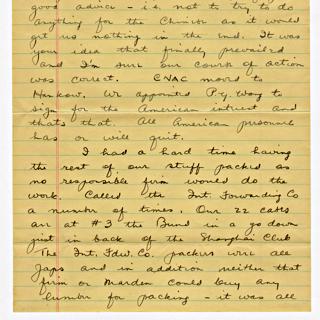 good advice - i.e. not to try to do
anything for the Chinese as it would
get us nothing in the end. It was
your idea that finally prevailed
and I'm sure our course of action
was correct. CNAC moved to
Hankow. We appointed P.Y. Wong to
sign for the American interest and
thats that. All American personnel
has or will quit.
I had a hard time having
the rest of our stuff packed as
no responsible firm would do the
work. Called the Int. Forwarding Co
a number of times. Our 22 cases
are at #3 the Bund in a go down
just in back of the Shanghai Club
The Int. Fdw. Co. packers were all
Japs and in addition neither that
firm or Marden could buy any
lumber for packing - it was all